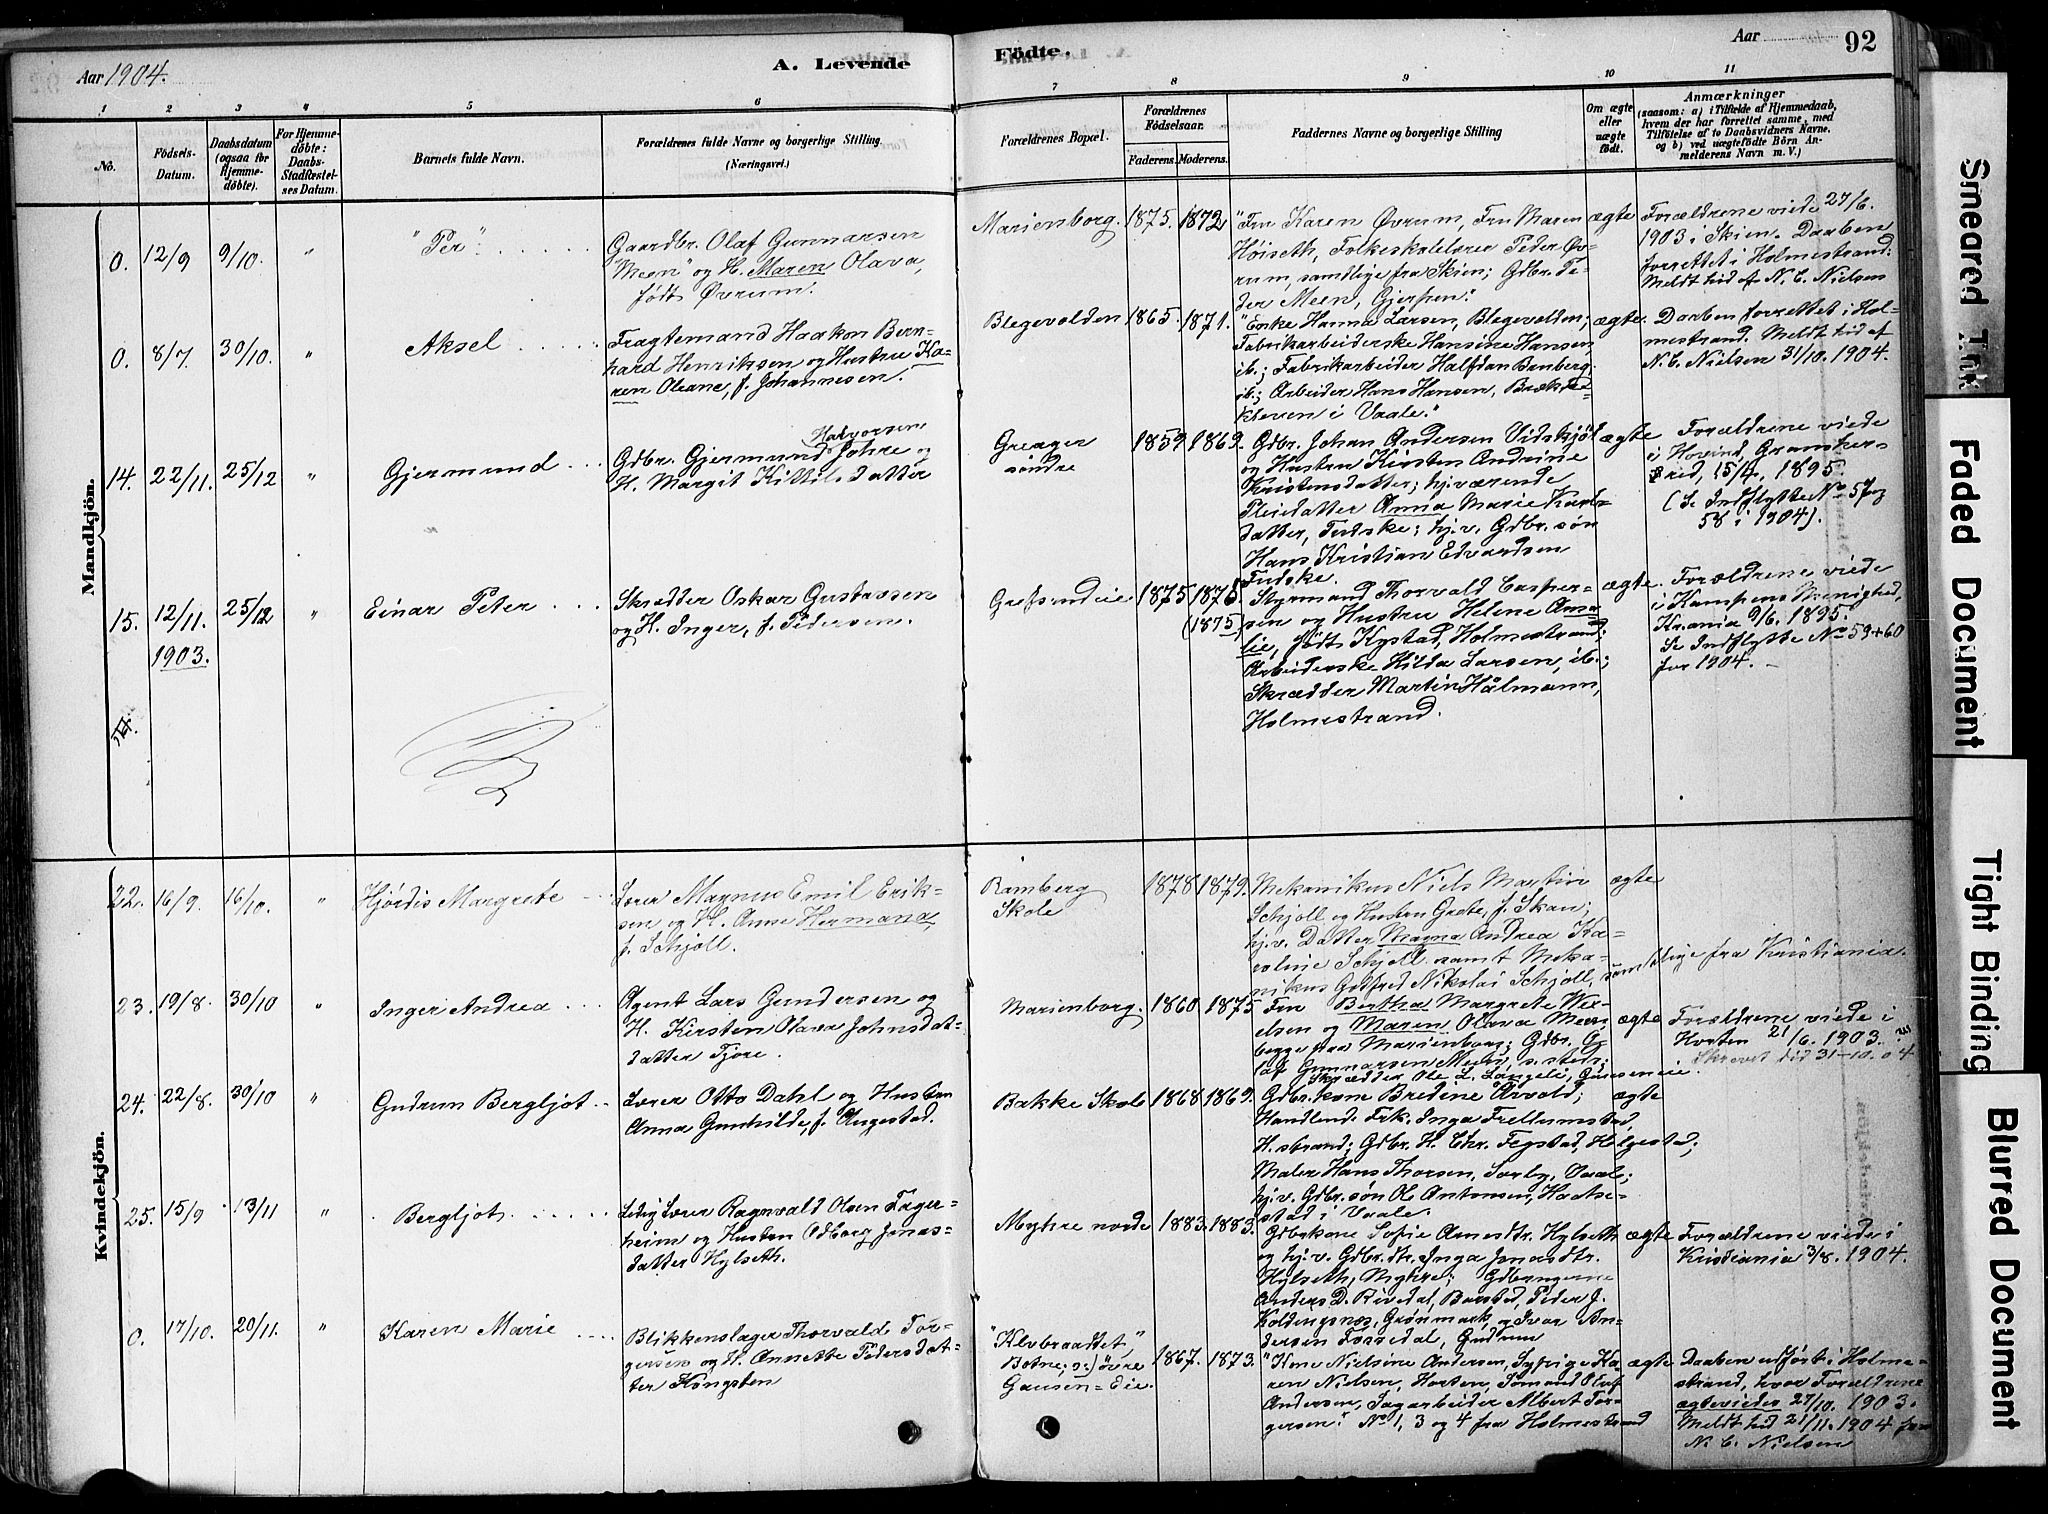 Aar 1904.
A. Levende
Födte.
Aar
92
1
2
3
"
5
6
7
8
9
10
11
No.
Födsels-
Datum.
Daabsdatum
(ogsaa for
Hjemme-
döbte).
For Hjemme-
döbte:
Daabs-
Stadfæstel-
ses Datum.
Barnets fulde Navn.
Forældrenes fulde Navne og borgerlige Stilling.
(Næringsvei.)
Forældrenes Bopæl.
Forældrenes
Födselsaar.
Faderens.
Moderens.
Faddernes Navne og borgerlige Stilling
Om ægte
eller
uægte
födt.
Anmærkninger
(saasom: a) i Tilfælde af Hjemmedaab,
hvem der har forrettet samme, med
Tilföielse af to Daabsvidners Navne,
og b) ved uægtefödte Börn An-
melderens Navn m. V.)
Mandkjön.
0. 12/9 9/10. " "Per"
Gaardbr. Olaf Gunnarsen
"Meen" og H. Maren Olava,
født Øvrum.
Marienborg. 1875. 1872
"Fru Karen Øvrum, Fru Maren
Høiseth, Folkeskolelærer Peder Øv-
rum, samtlige fra Skien; Gdbr. Pe-
der Meen, Gjerpen."
ægte
Forældrene viede 27/6.
1903 i Skien. Daaben
forrettet i Holmestrand.
Meldt hid af N. C. Nielsen
0. 8/7. 30/10. " Aksel
Fragtemand Haakon Bern-
hard Henriksen og Hustru Ka-
ren Oleane, f. Johannesen.
Blegevolden 1865. 1871.
"Enke Hanna Larsen, Blegevolden;
Fabrikarbeiderske Hansine Hansen,
ib.; Fabrikarbeider Halfdan Bamberg,
ib.; Arbeider Hans Hansen, Bræk-
kleven i Vaale."
ægte.
Daaben forrettet i Hol-
mestrand. Meldt hid af
N. C. Nielsen 31/10. 1904.
14. 22/11. 25/12 " Gjermund
Halvorsen
Gdbr. Gjermund Johre og
H. Margit Kittilsdatter
Greager
søndre
1859 1869.
Gdbr. Johan Andersen Vidskjøl
og Hustru Kirsten Andrine
Kristensdatter; hjværende
Pleiedatter Anna Marie Karls-
datter, Fudske; hj.v. Gdbr. søn
Hans Kristian Edvardsen
Fudske.
ægte
Forældrene viede
i Hovind, Gransher-
red, 15/4, 1895.
(Se Indflytte No 57 og
58 i 1904).
15. 12/11. 1903. 25/12 " Einar Peter
Skrædder Oskar Gustavsen
og H. Inger, f. Pedersen.
Grefsrudeie 1875 1876 (1875)
Styrmand Thorvald Casper-
sen og Hustru Helene Ama
lie, født Kystad, Holmestrand;
Arbeiderske Hilda Larsen, ib.;
Skrædder Martin Hålmann,
Holmestrand.
ægte.
Forældrene viede
i Kampens Menighed,
Kr.ania 9/6. 1895.
Se Indflytte No 59+60
for 1904.
Kvindekjön.
22. 16/9. 16/10. " Hjørdis Margrete
Lærer Magnus Emil Erik-
sen, og H. Anne Hermana,
f. Schjøll.
Ramberg
Skole
1878 1879.
Mekanikus Niels Martin
Schjøll og Hustru Grete, f. Skau;
hj.v. Datter Magna Andrea Ka-
roline Schjøll samt Meka-
nikus Gotfred Nikolai Schjøll, samtlige fra Kristiania.
ægte
23. 19/8. 30/10 " Inger Andrea
Agent Lars Gundersen og
H. Kirsten Olava Johnsdat-
datter Fjøre.
Marienborg. 1860 1875
Fru Bertha Margrete Wer-
elsen og Maren Olava Meen,
begge fra Marienborg; Gdbr. O-
laf Gunnarsen Meen, s. steds;
Skrædder Ole L. Langeli, Gausen eie.
ægte
Forældrene viede i
Horten 21/6. 1903.
Skrevet did 31-10. 04
24. 22/8. 30/10 " Gudrun Bergljot
Lærer Otto Dahl og Hustru
Anna Gunhilde, f. Augestad.
Bakke Skole 1868 1869.
Gdbr.kone Bredine Arvold;
Handlend. Frk. Inga Frellumstad,
H.strand; Gdbr. H. Chr. Fegstad, Helgestad;
Maler Hans Thorsen, Sørby, Vaale;
hj.v. Gdbr.søn Ole Antonsen, Haatve-
stad i Vaale.
ægte
25. 15/9 13/11 " Bergljot
Ledig Lærer Ragnvald Olsen Fager-
heim og Hustru Odborg Jonas-
datter Hylseth.
Myhre nordre 1883. 1883.
Gdbrkone Sofie Arnesdtr. Hylseth
og hj.v. Gdbr.dtr. Inga Jonasdtr.
Hylseth, Myhre; Gdbrngerne
Anders D. Rivedal, Borstad, Peder J.
Koldingsnes, Grønmark, og Ivar An-
dersen Fossedal, Gudum
ægte
Forældrene viede i
Kristiania 3/8. 1904.
0. 17/10. 20/11. " Karen Marie
Blikkenslager Thorvald Tor-
gersen og H. Annette Pedersdat-
ter Kongsten
"Klvbraadtet,"
Botne; ɔ:) øvre
Gausen=Eie.
1867. 1873.
"Kone Nielsine Andersen, Syerige Ka-
ren Nielsen, Horten, Sømand Oluf
Andersen, Sagarbeider Albert Tor-
gersen." No 1, 3 og 4 fra Holmestrand
ægte
Daaben udført i Holme-
strand, hvor Forældrene
ægteviedes 27/10. 1903.
Meldt hid 21/11. 1904 fra
N. C. Nielsen
Smeared Ink
Faded Document
Tight Binding
Blurred Document